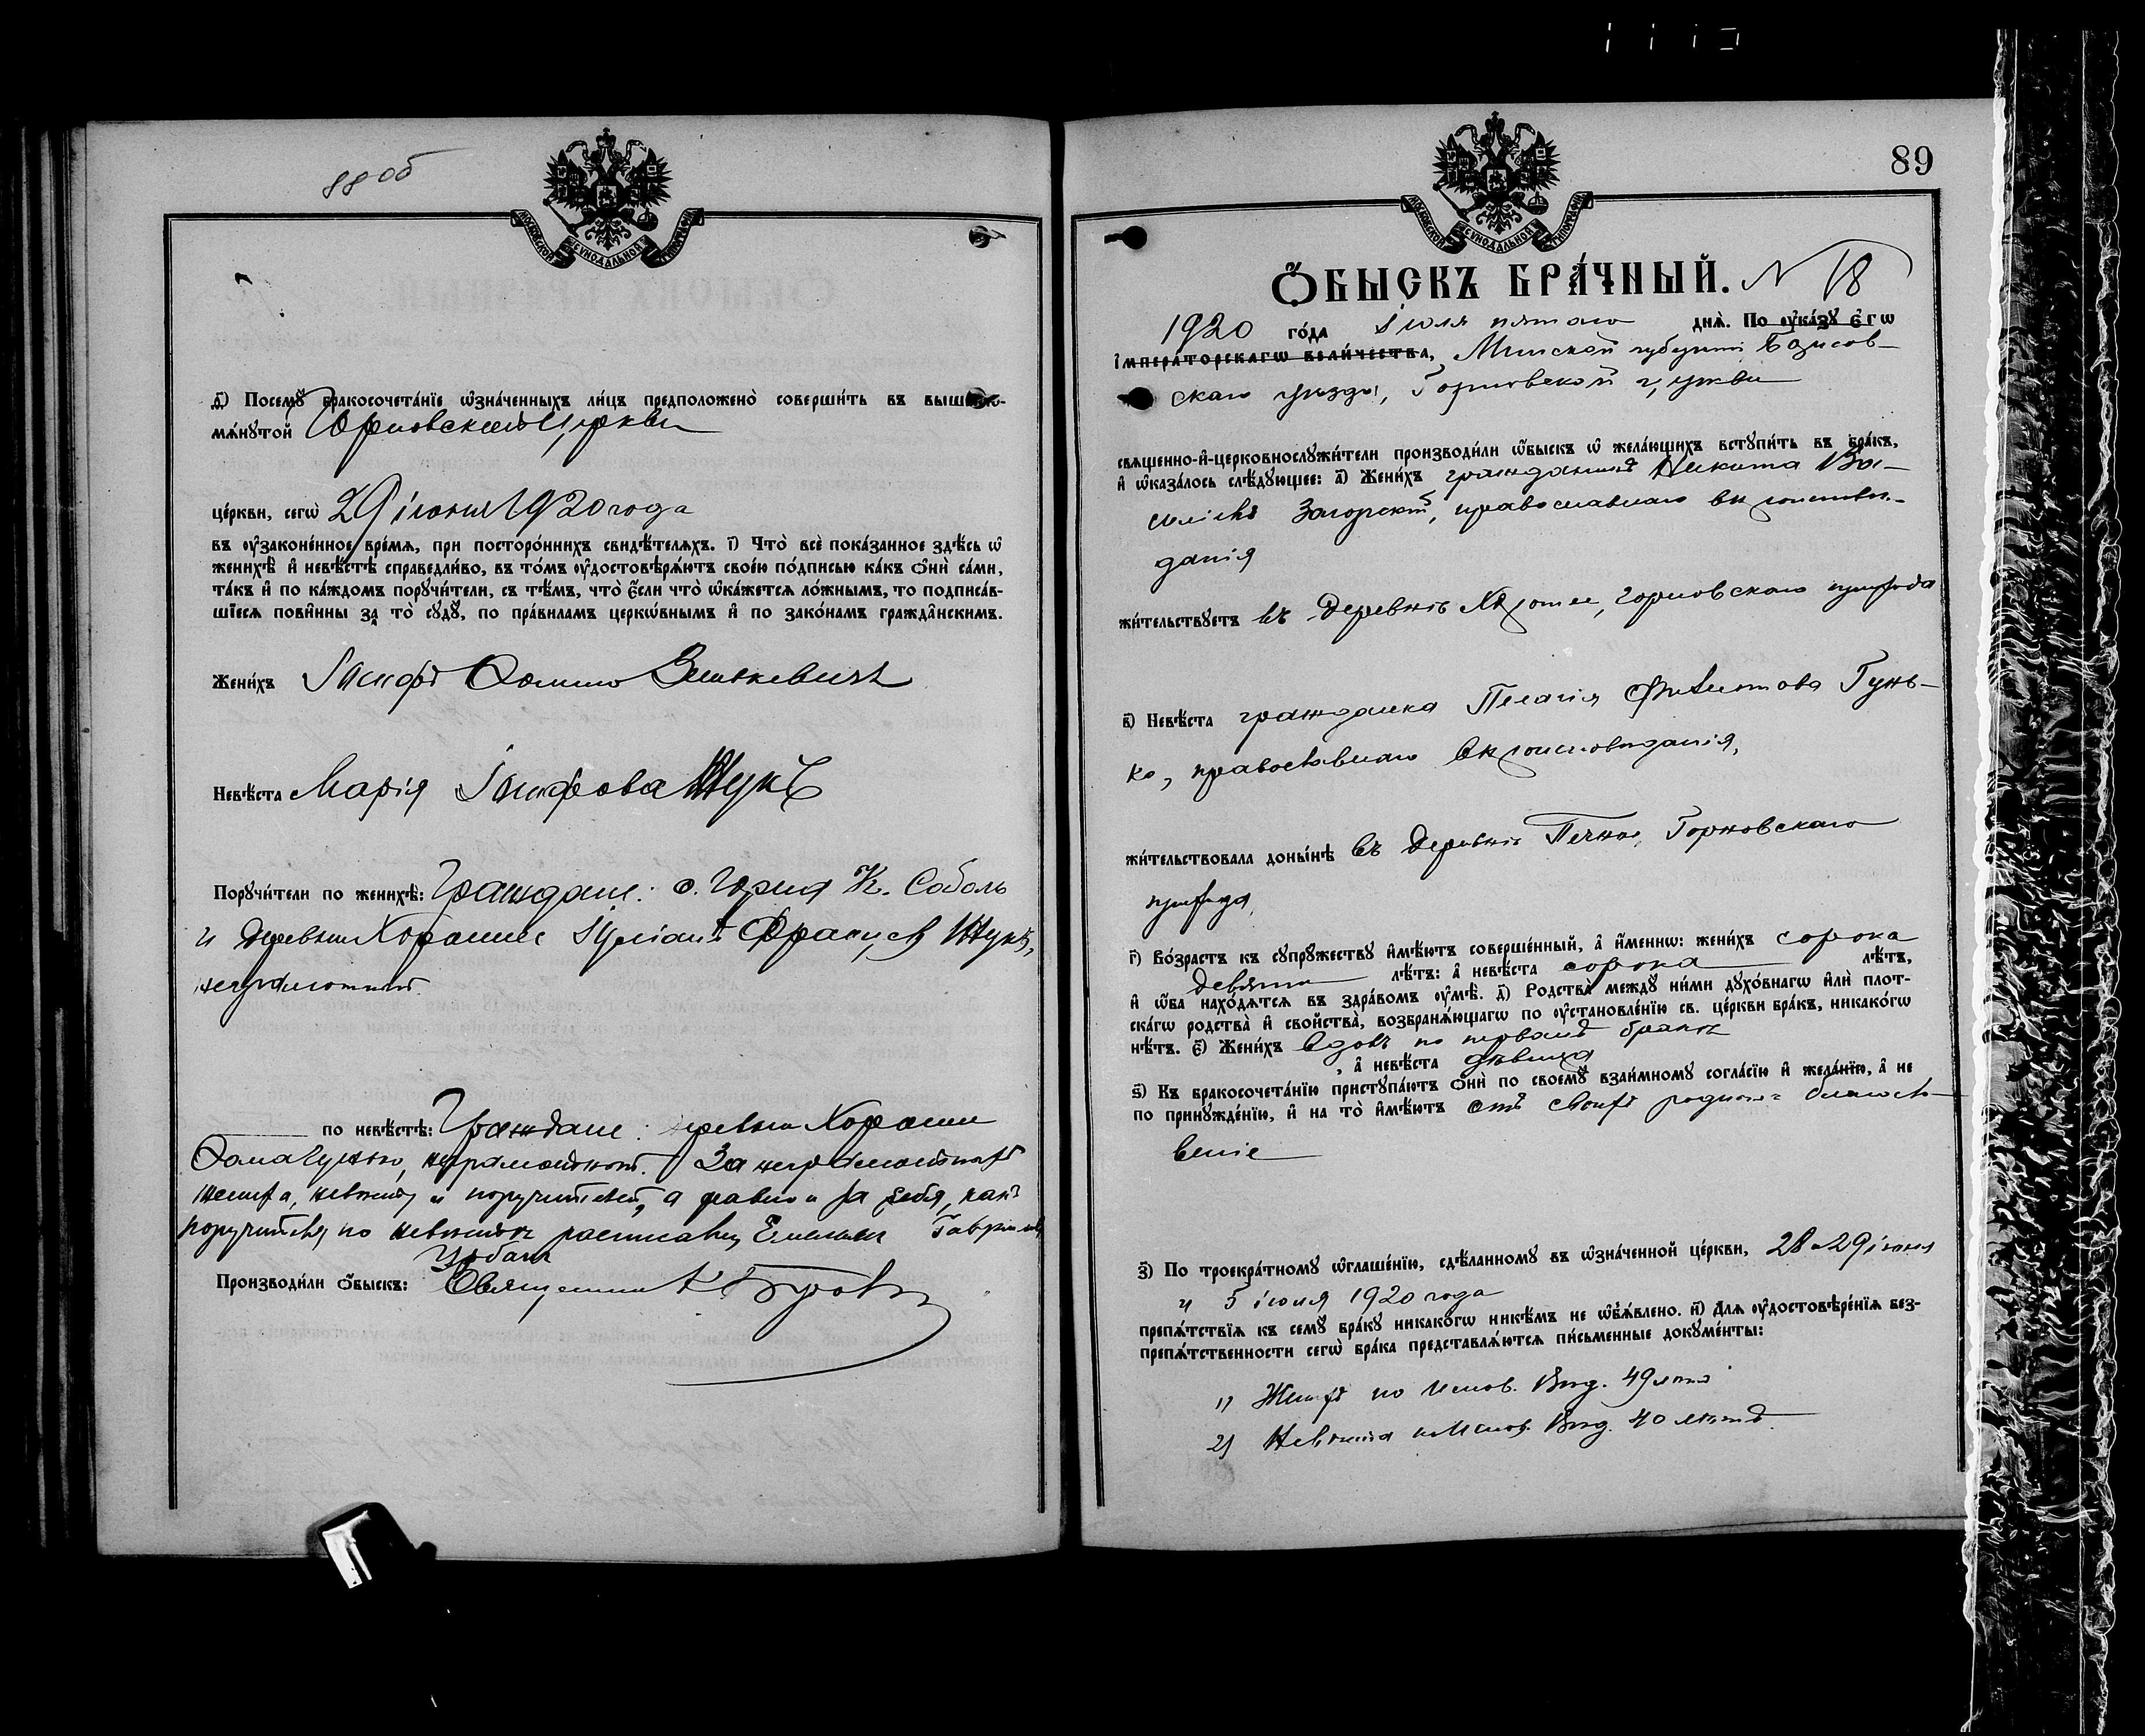 88 об
МОСКОВСКОЙ СѴНОДАЛЬНОЙ ТИПОГРАФІИ
д҃) Посемꙋ̀ бракосочета́нїе ѡ҆зна́ченныхъ ли́цъ предположено̀ соверши́ть въ вышепо-
мѧ́нꙋтой Горновской церкви
це́ркви, сегѡ̀ 29 іюня 1920 года
въ ᲂу҆зако́не́нное вре́мѧ, при посторо́ннихъ свидѣ́телѧхъ. і҃) Что̀ всѐ пока́занное здѣ́сь ѡ҆
женихѣ̀ и҆ невѣ́стѣ справедли́во, въ то́мъ ᲂу҆достовѣрѧ́ютъ свое́ю по́дписью ка́къ ѻ҆нѝ са́ми,
та́къ и҆ по ка́ждомъ порꙋчи́тели, съ тѣ́мъ, что̀ є҆́сли что̀ ѡ҆ка́жетсѧ ло́жнымъ, то подписа́в-
шїесѧ пови́нны за то̀ сꙋдꙋ̀, по пра́виламъ церко́внымъ и҆ по зако́намъ гражда́нскимъ.
Жени́хъ Іосифъ Зенькевичъ
Невѣ́ста Марія Іосифова Жукъ
Порꙋчи́тели по женихѣ̀: Граждане: с. Горна К. Соболь
и деревни Хоромце Францевъ Жукъ,
неграмотный.
по невѣ́стѣ: Граждане: деревни
неграмотный. За неграмотныхъ
жениха, невѣсту и поручителей, а равно и за себя, какъ
поручитель по невѣстѣ расписался Емельянъ Гаврииловъ
Урбанъ
Производи́ли ѻ҆́быскъ: Священникъ
89
МОСКОВСКОЙ СѴНОДАЛЬНОЙ ТИПОГРАФІИ
Ѻ҆́БЫСКЪ БРА́ЧНЫЙ. N 18
1920 го́да Іюля пятаго днѧ̀. По ᲂу҆ка́зꙋ є҆гѡ̀
і҆мпера́торскагѡ вели́чества, Минской губерніи Борисов-
скаго уѣзда, Горновской церкви
свѧще́нно-и҆-церковнослꙋжи́тели производи́ли ѡ҆́быскъ ѡ҆ жела́ющихъ встꙋпи́ть въ бра́къ,
и҆ ѡ҆каза́лось слѣ́дꙋющее: а҃) Жени́хъ гражданинъ Никита Ва-
силіевъ Загорскій, православнаго вѣроисповѣ-
данія
жи́тельствꙋетъ въ деревнѣ горновскаго прихода
в҃) Невѣ́ста гражданка Пелагія Гунь-
ко, православнаго вѣроисповѣданія,
жи́тельствовала доны́нѣ въ деревнѣ Горновскаго
прихода,
г҃) Во́зрастъ къ сꙋпрꙋ́жествꙋ и҆мѣ́ютъ соверше́нный, а҆ и҆́менно: жени́хъ сорока
девяти лѣ́тъ: а҆ невѣ́ста сорока лѣ́тъ,
и҆ ѡ҆́ба нахо́дѧтсѧ въ здра́вомъ ᲂу҆мѣ̀. д҃) Родства̀ междꙋ̀ ни́ми дꙋхо́внагѡ и҆лѝ плот-
ска́гѡ родства̀ и҆ сво́йства, возбранѧ́ющагѡ по ᲂу҆становле́нїю св. це́ркви бра́къ, никако́гѡ
нѣ́тъ. є҃) Жени́хъ вдовъ по первомъ бракѣ
, а҆ невѣ́ста дѣвица
ѕ҃) Къ бракосочета́нїю пристꙋпа́ютъ ѻ҆нѝ по своемꙋ̀ взаи́мномꙋ согла́сїю и҆ жела́нїю, а҆ не
по принꙋжде́нїю, и҆ на то̀ и҆мѣ́ютъ отъ своихъ родныхъ благосло-
веніе
з҃) По троекра́тномꙋ ѡ҆глаше́нїю, сдѣ́ланномꙋ въ ѡ҆зна́ченной це́ркви, 28 и 29 іюня
и 5 іюля 1920 года
препѧ́тствїѧ къ семꙋ̀ бра́кꙋ никако́гѡ никѣ́мъ не ѡ҆б̾ѧ́влено. и҃) Длѧ ᲂу҆достовѣре́нїѧ без-
препѧ́тственности сегѡ̀ бра́ка представлѧ́ютсѧ пи́сьменные докꙋме́нты:
1) Женихъ по Испов. Вѣд. 49 лѣтъ
2) Невѣста по Испов. Вѣд. 40 лѣтъ